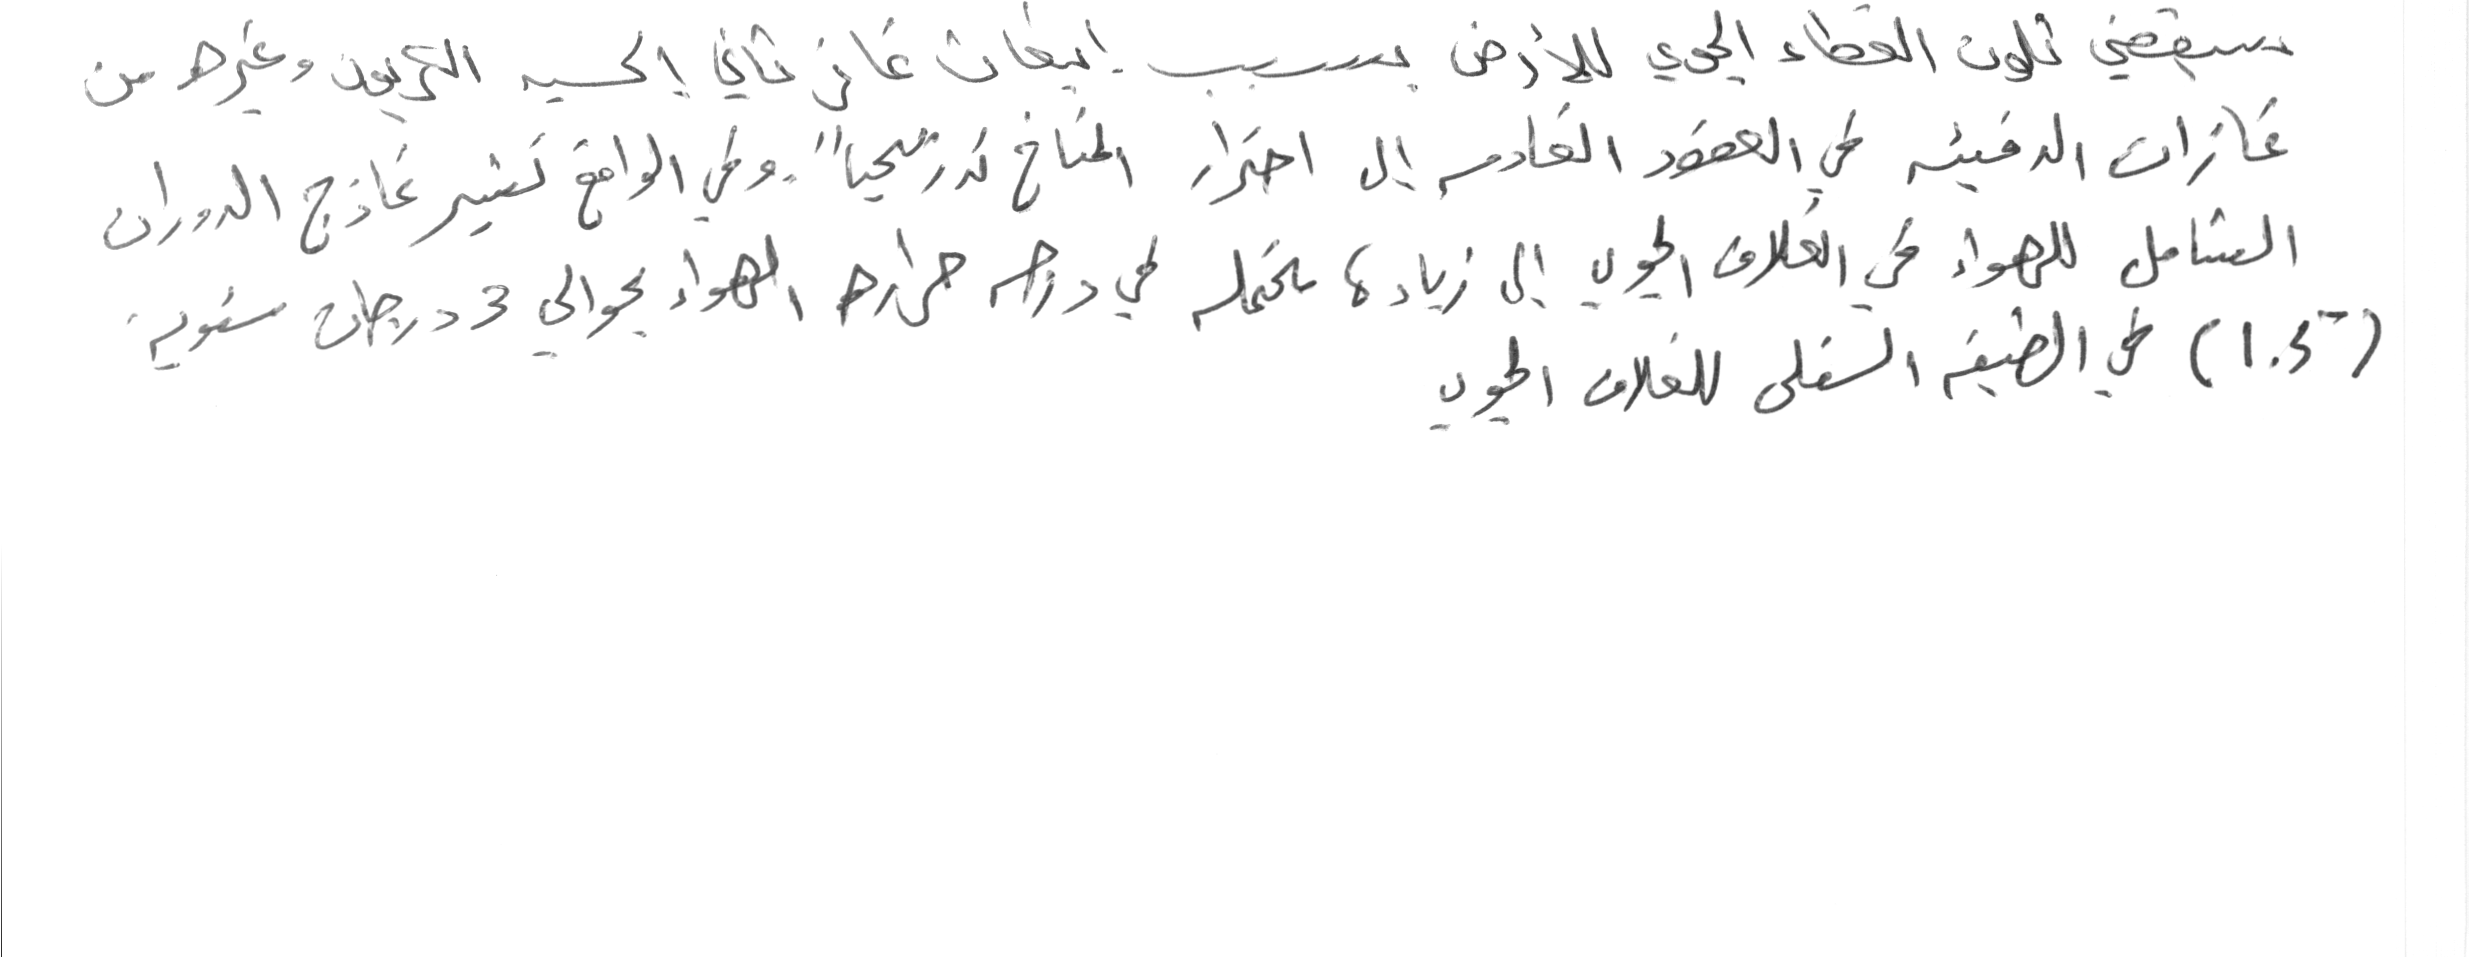 سيقضي تلوث الغطاء الجوي للأرض بسبب انبعاث غاز ثاني إكسيد الكربون وغيره من
غازات الدفيئه في العقود القادمه إلى احترار المناخ تدريجيا". وفي الواقع تشير نماذج الدوران
الشامل للهواء في الغلاف الجوي إلى زيادة محتمله في درجه حراره الهواء بحوالي 3 درجات مئويه
(1.5-) في الطبقه السفلى للغلاف الجوي